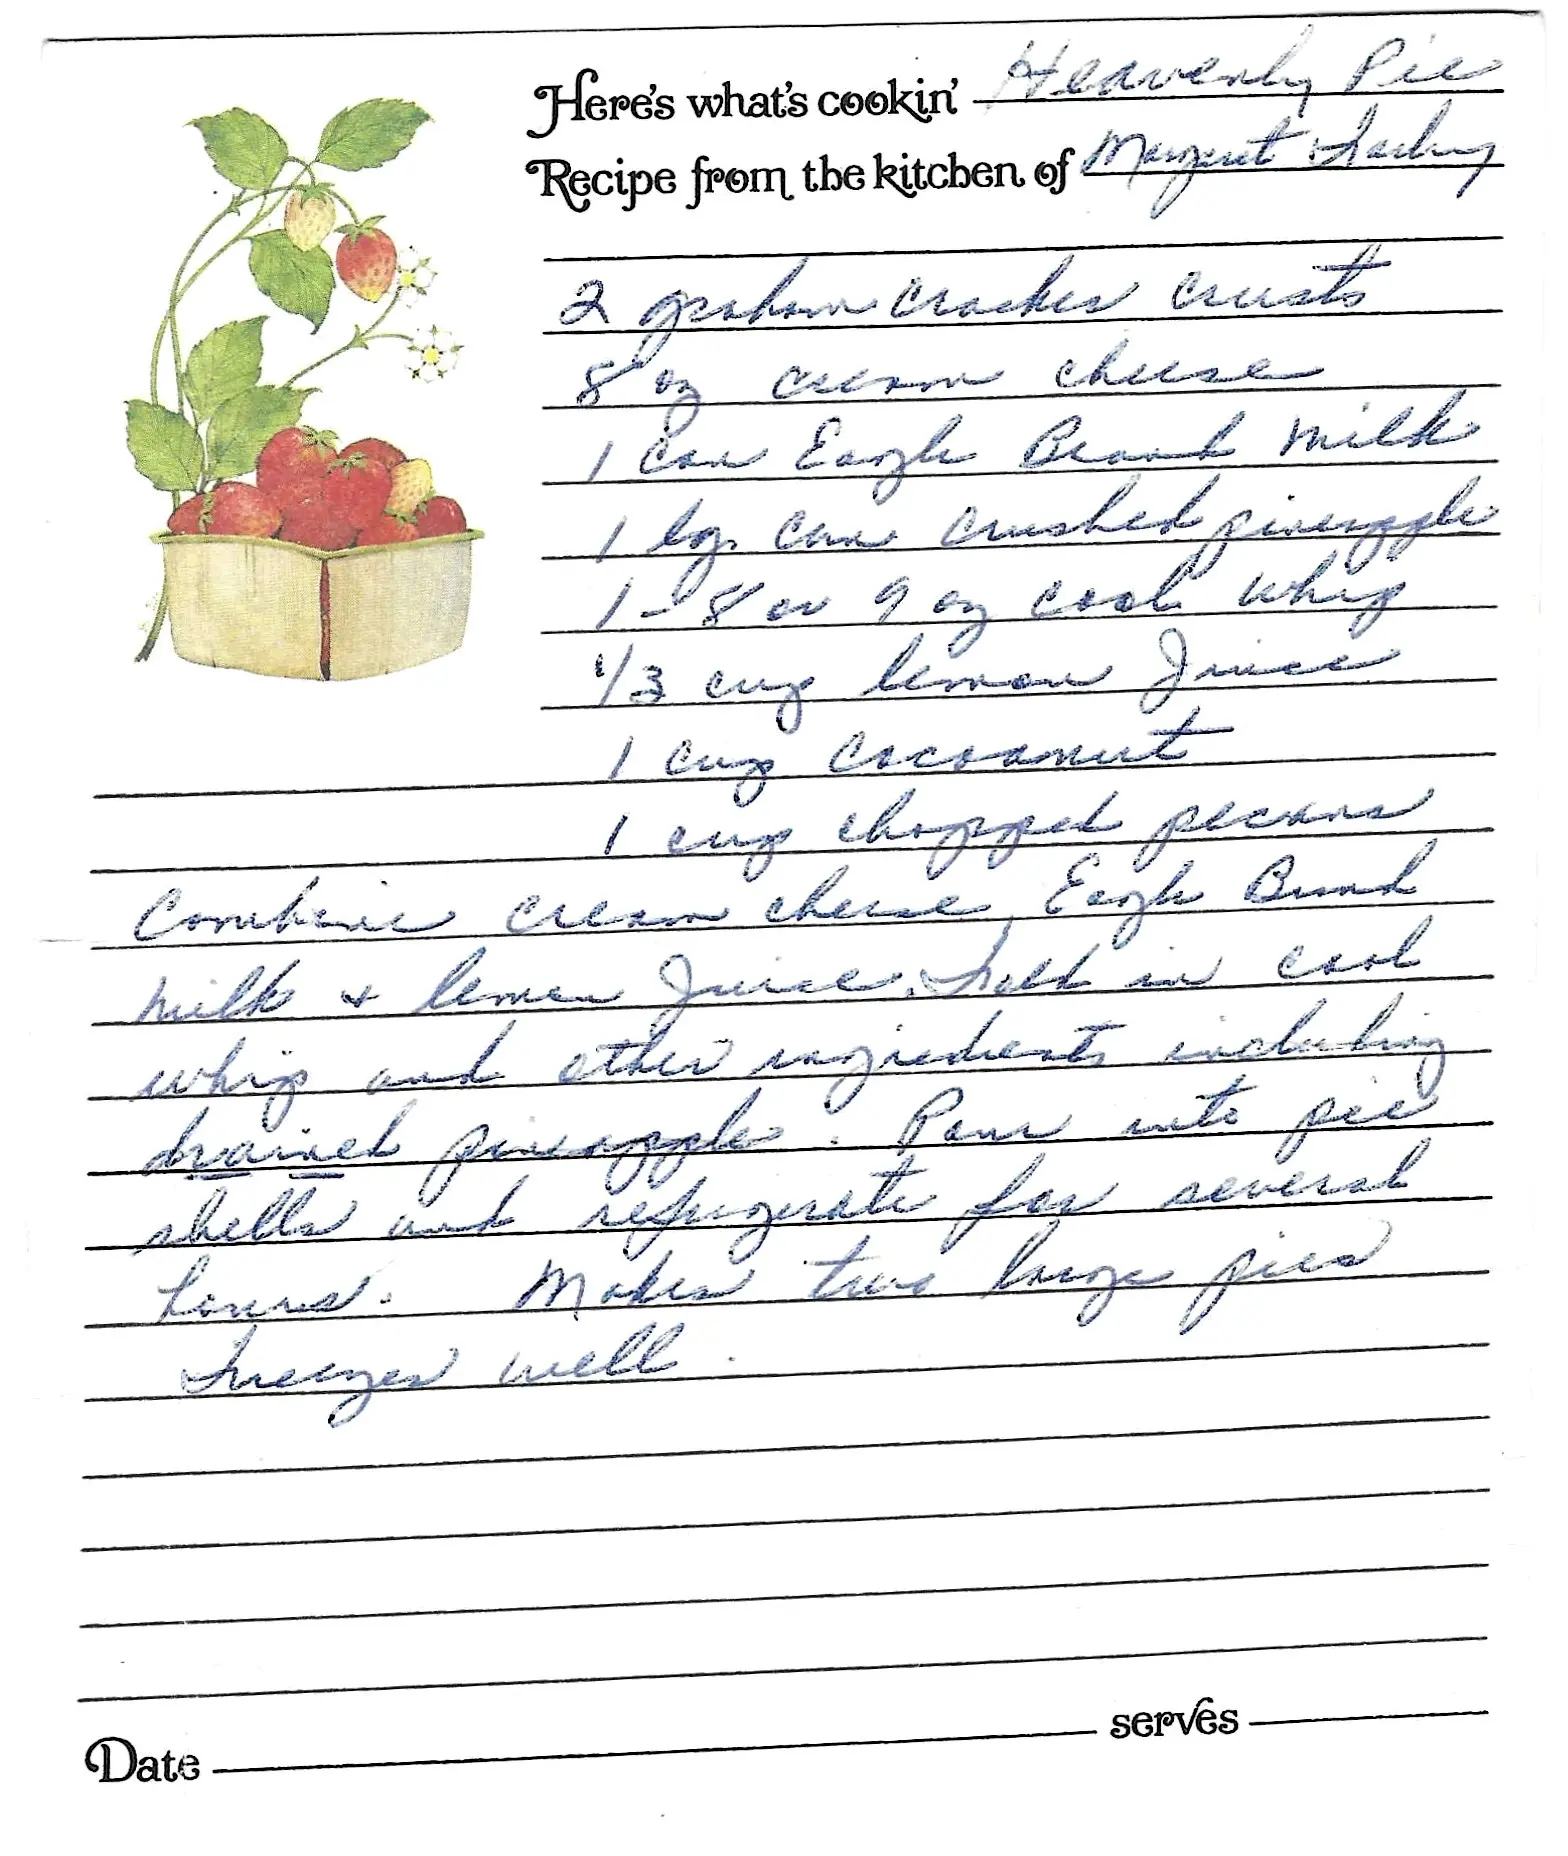 Here's what's cookin' Heavenly Pie
Recipe from the kitchen of Margaret
2 graham cracker crusts
8 oz cream cheese
1 can Eagle Brand Milk
1 lg. can crushed pineapple
1 - 8 or 9 oz cool whip
1/3 cup lemon Juice
1 cup cocoanut
1 cup chopped pecans
Combine cream cheese, Eagle Brand
Milk & lemon Juice. Fold in cool
whip and other ingredients including
drained pineapple. Pour into pie
shells and refrigerate for several
hours. Makes two large pies
Freezes well.
Date serves